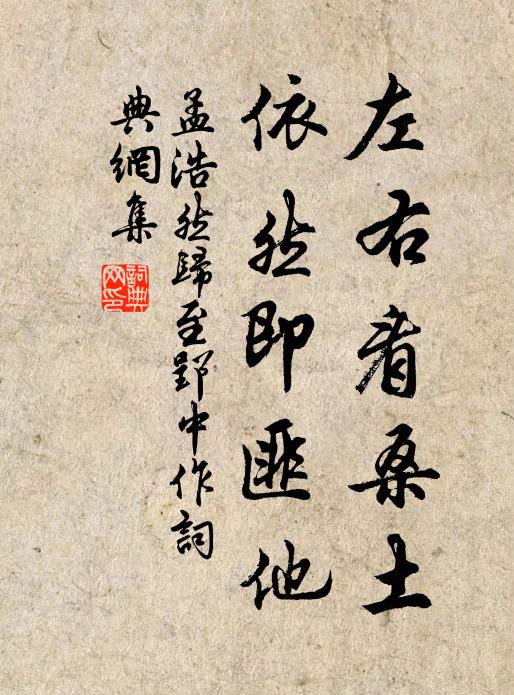 左右看桑土
依然即匪他
孟浩然歸至郢中作詞
典網集
詞典網印